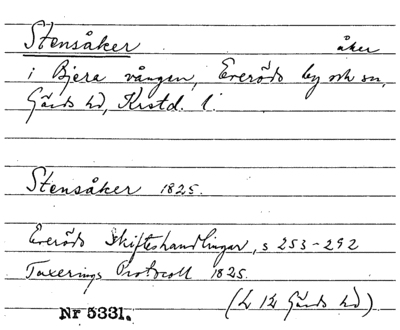 Stensåker åker
i Bjera vången, Everöds by och sn,
Gärds hd, Krstd. l.
Stensåker 1825.
Everöds Skifteshandlingar, s 253-292
Taxerings Protocoll 1825.
(L 12 Gärds hd)
Nr 5331.